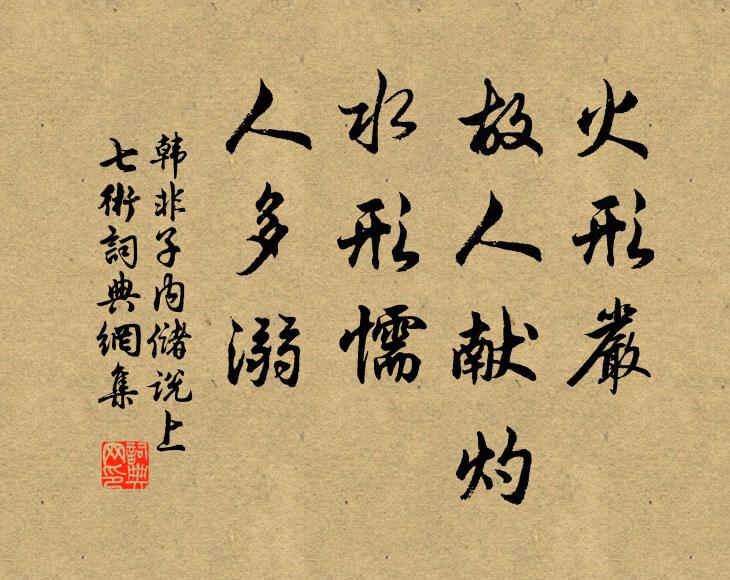 火形嚴
故人献灼
水形懦
人多溺
韩非子内儲説上
七術詞典網集
詞典
网印